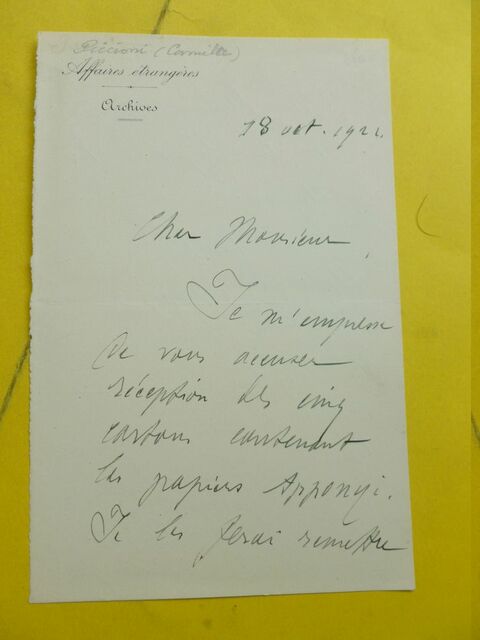 Piccioni (Camille)
Affaires étrangères
Archives
18 oct. 1922.
Cher Monsieur,
Je m'empresse
de vous accuser
réception des cinq
cartons contenant
les papiers Apponyi.
Je les ferai remettre